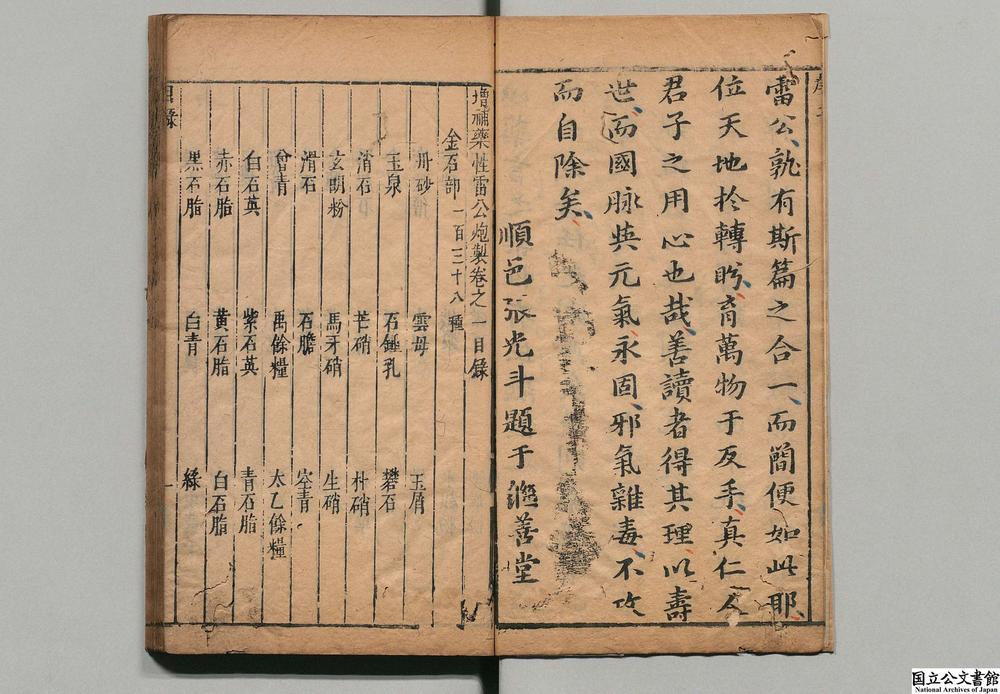 序
雷公孰有斯篇之合一而簡便如此耶
位天地於轉盻育萬物于反手真仁人
君子之用心也哉善讀者得其理以壽
世而國脉與元氣永固邪氣雜毒不攻
而自除矣
順邑張光斗題于繼善堂
增補藥性雷公炮製卷之一目錄
金石部一百三十八種
丹砂 雲母 玉屑
玉泉 石鍾乳 礬石
消石 芒硝 朴硝
玄明粉 馬牙硝 生硝
滑石 石膽 空青
曾青 禹餘糧 太乙餘糧
白石英 紫石英 青石脂
赤石脂 黃石脂 白石脂
黑石脂 白青 綠
目錄
一
国立公文書館
National Archives of Japan